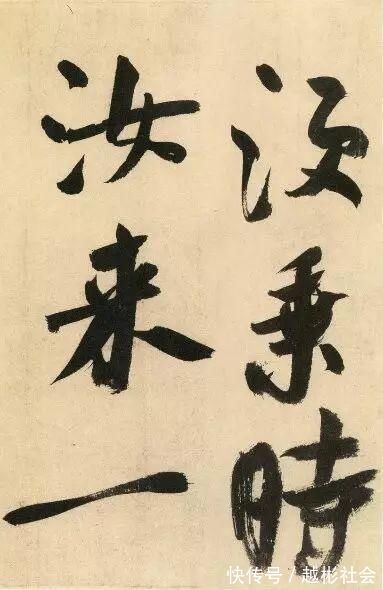 没乘時
汝来一
快传号 / 越彬社会